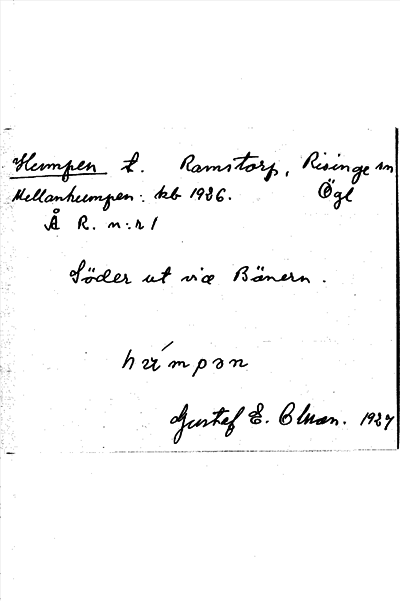 Humpen t. Ramstorp, Risinge sn
Mellanhumpen: kb 1926. Ögl
Å R. n:r 1
Söder ut via Bänern.
Gustaf E. 1927